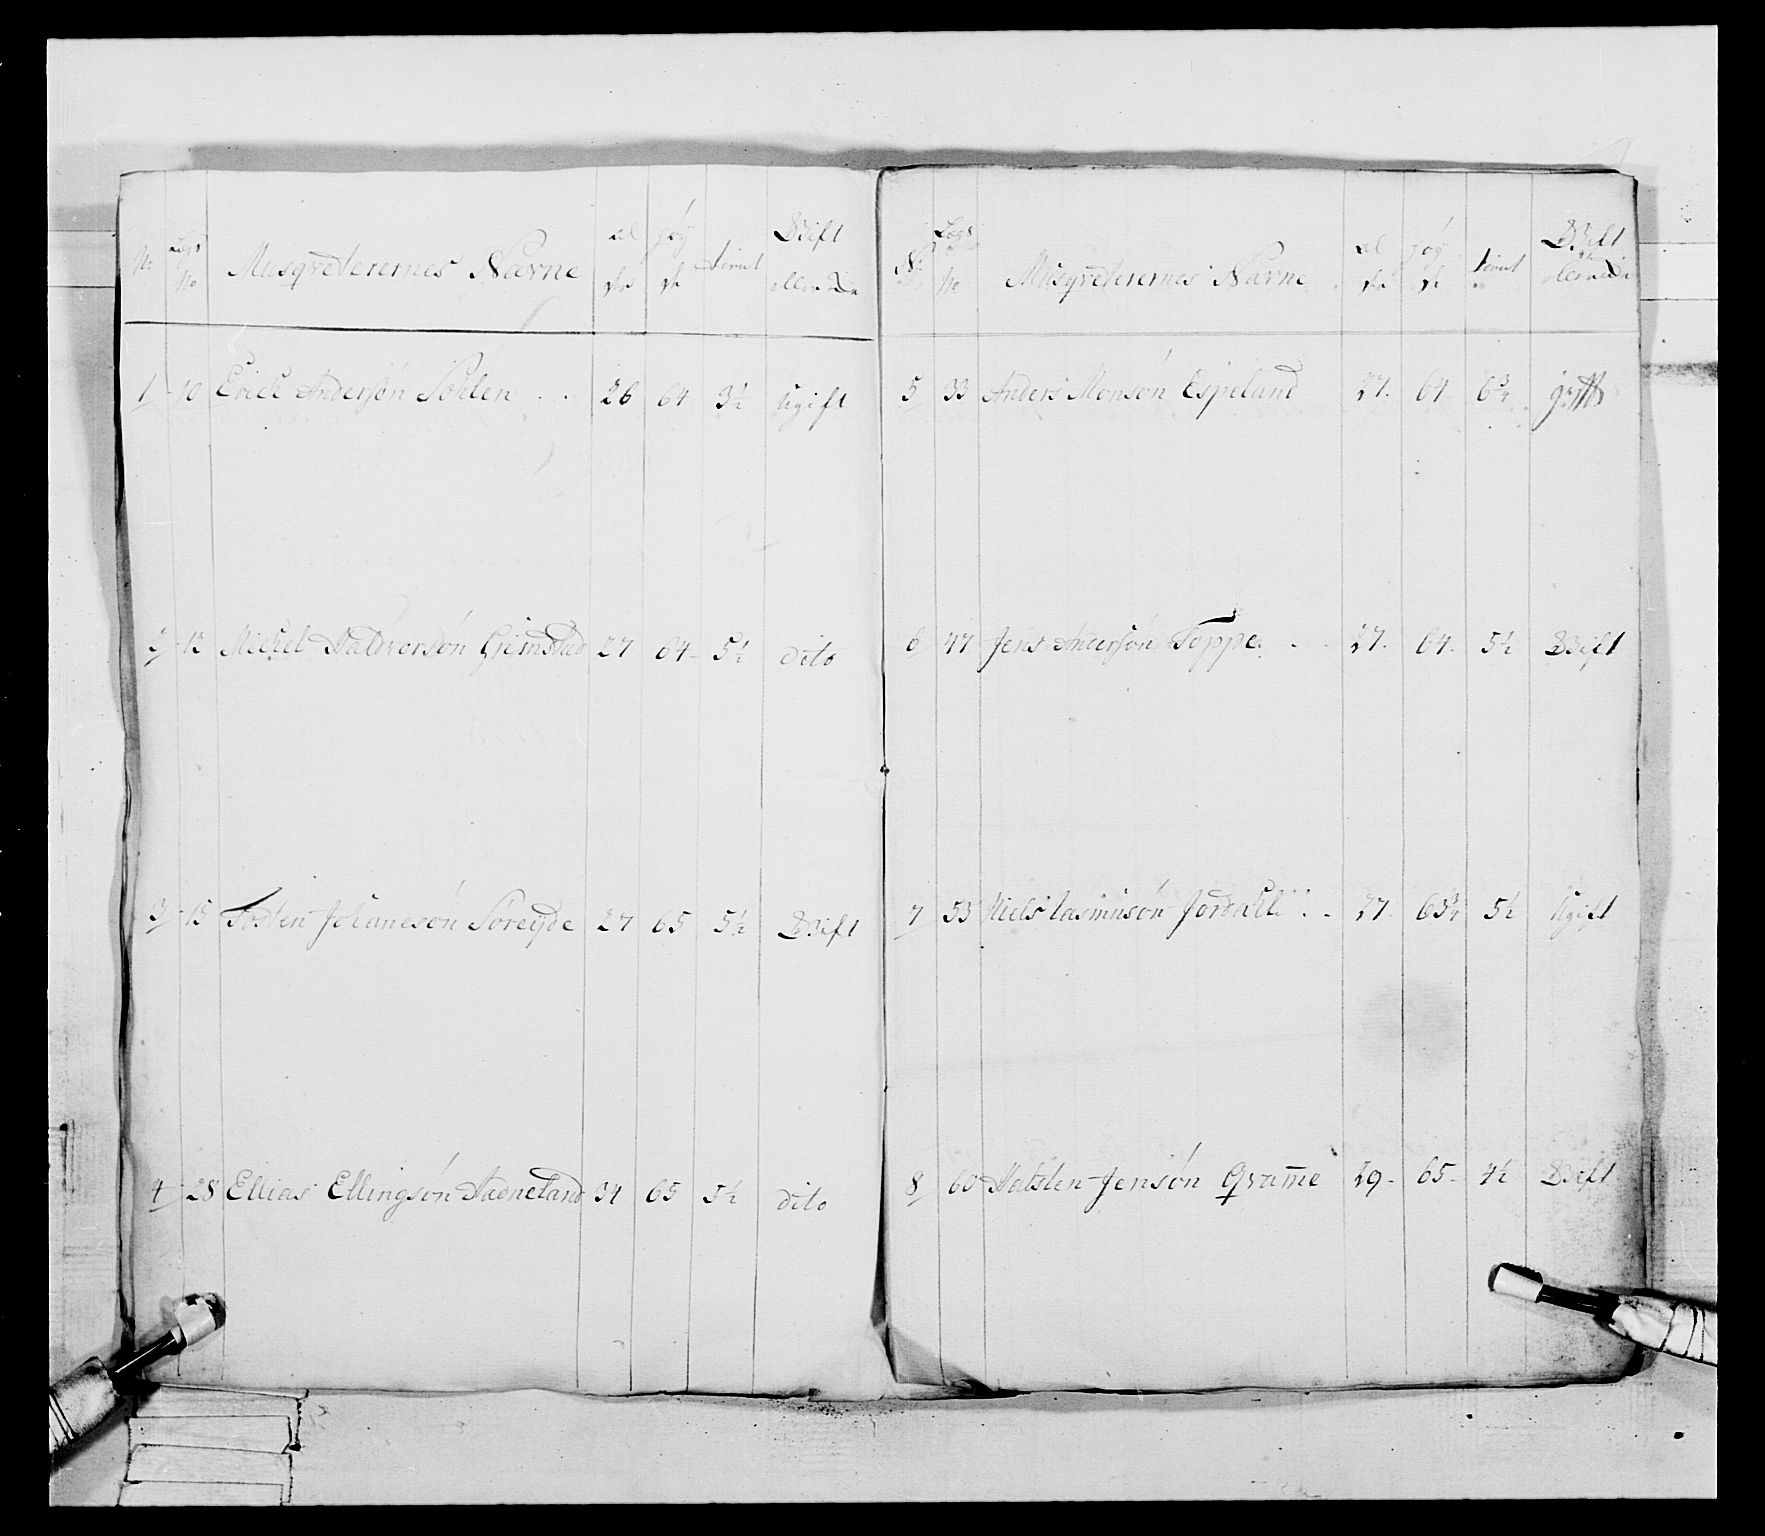 No Legs No Musqveterernes Navne al der höy de tomt Gift eller Ei
1 10 Erick Andersön Söhlen . . 26 64 3½ Ugift
2 13 Mickel Haldvorsön Grimstad 27 64 5½ dito
3 15 Tosten Johanesön Söreyde 27 65 5½ Gift
4 28 Ellias Ellingsön Hadneland 34 65 5½ dito
No Legs No Musqveterernes Navne al der höy de tomt Gift
5 33 Anders Monsön Espeland 27. 64 6¾ gift
6 47 Jens Andersön Toppe . . 27. 64. 5½ Gift
7 53 Niels Rasmusön Jordahl . . 27. 65¾ 5½ Ugift
8 60 Halsten Jensön Qvam̅e 29- 65- 4½ Gift